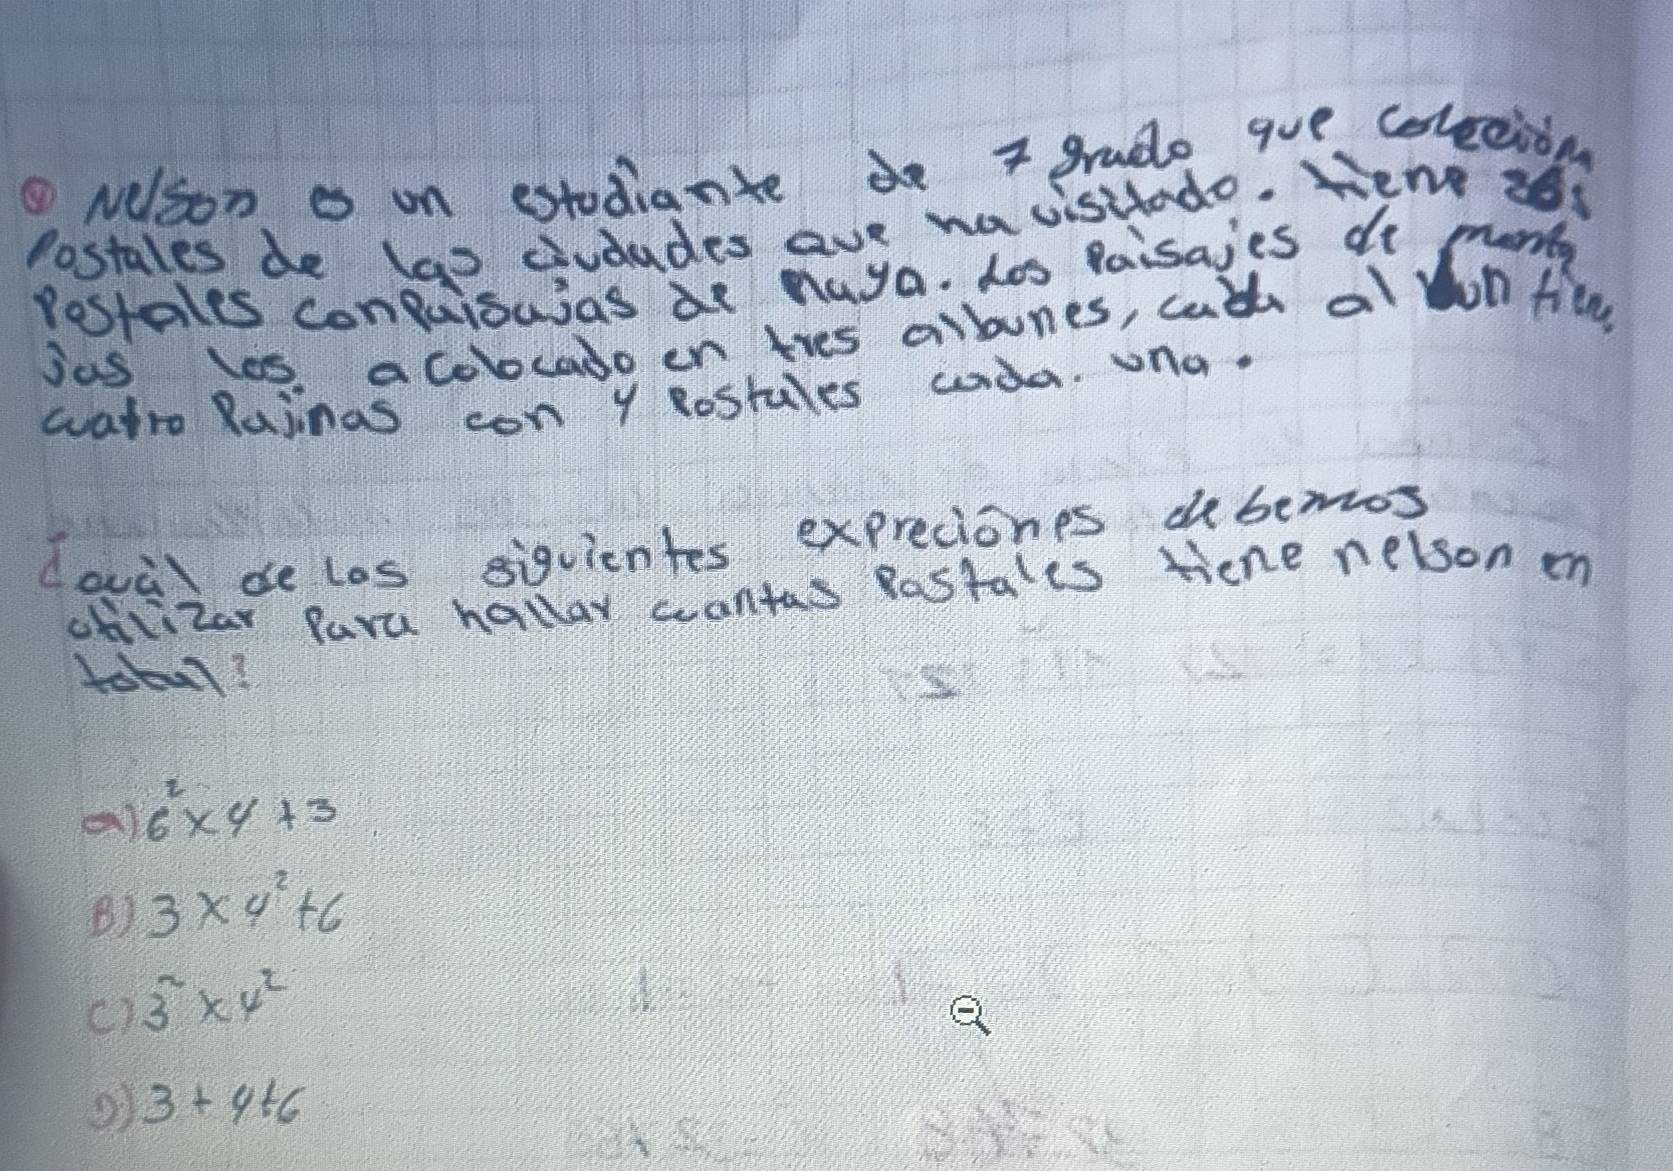 ④ Nelson es un estudiante de 7 grado que coleción
Postales de las ciudades que ha visitado. tiene
Postales con Paisajas de Playa. Los Paisajes de monta
Jas los a Colocado en tres albunes, cada al bun tiene
cuatro Pajinas con 4 Postales cada. una.
¿cuál de Los siguientes expreciónes debemos
utilizar Para hallar cuantas Pastales tiene nelson en
total?
a) 6² x 4 + 3
B) 3 x 4² + 6
C) 3² x 4²
D) 3 + 4 + 6